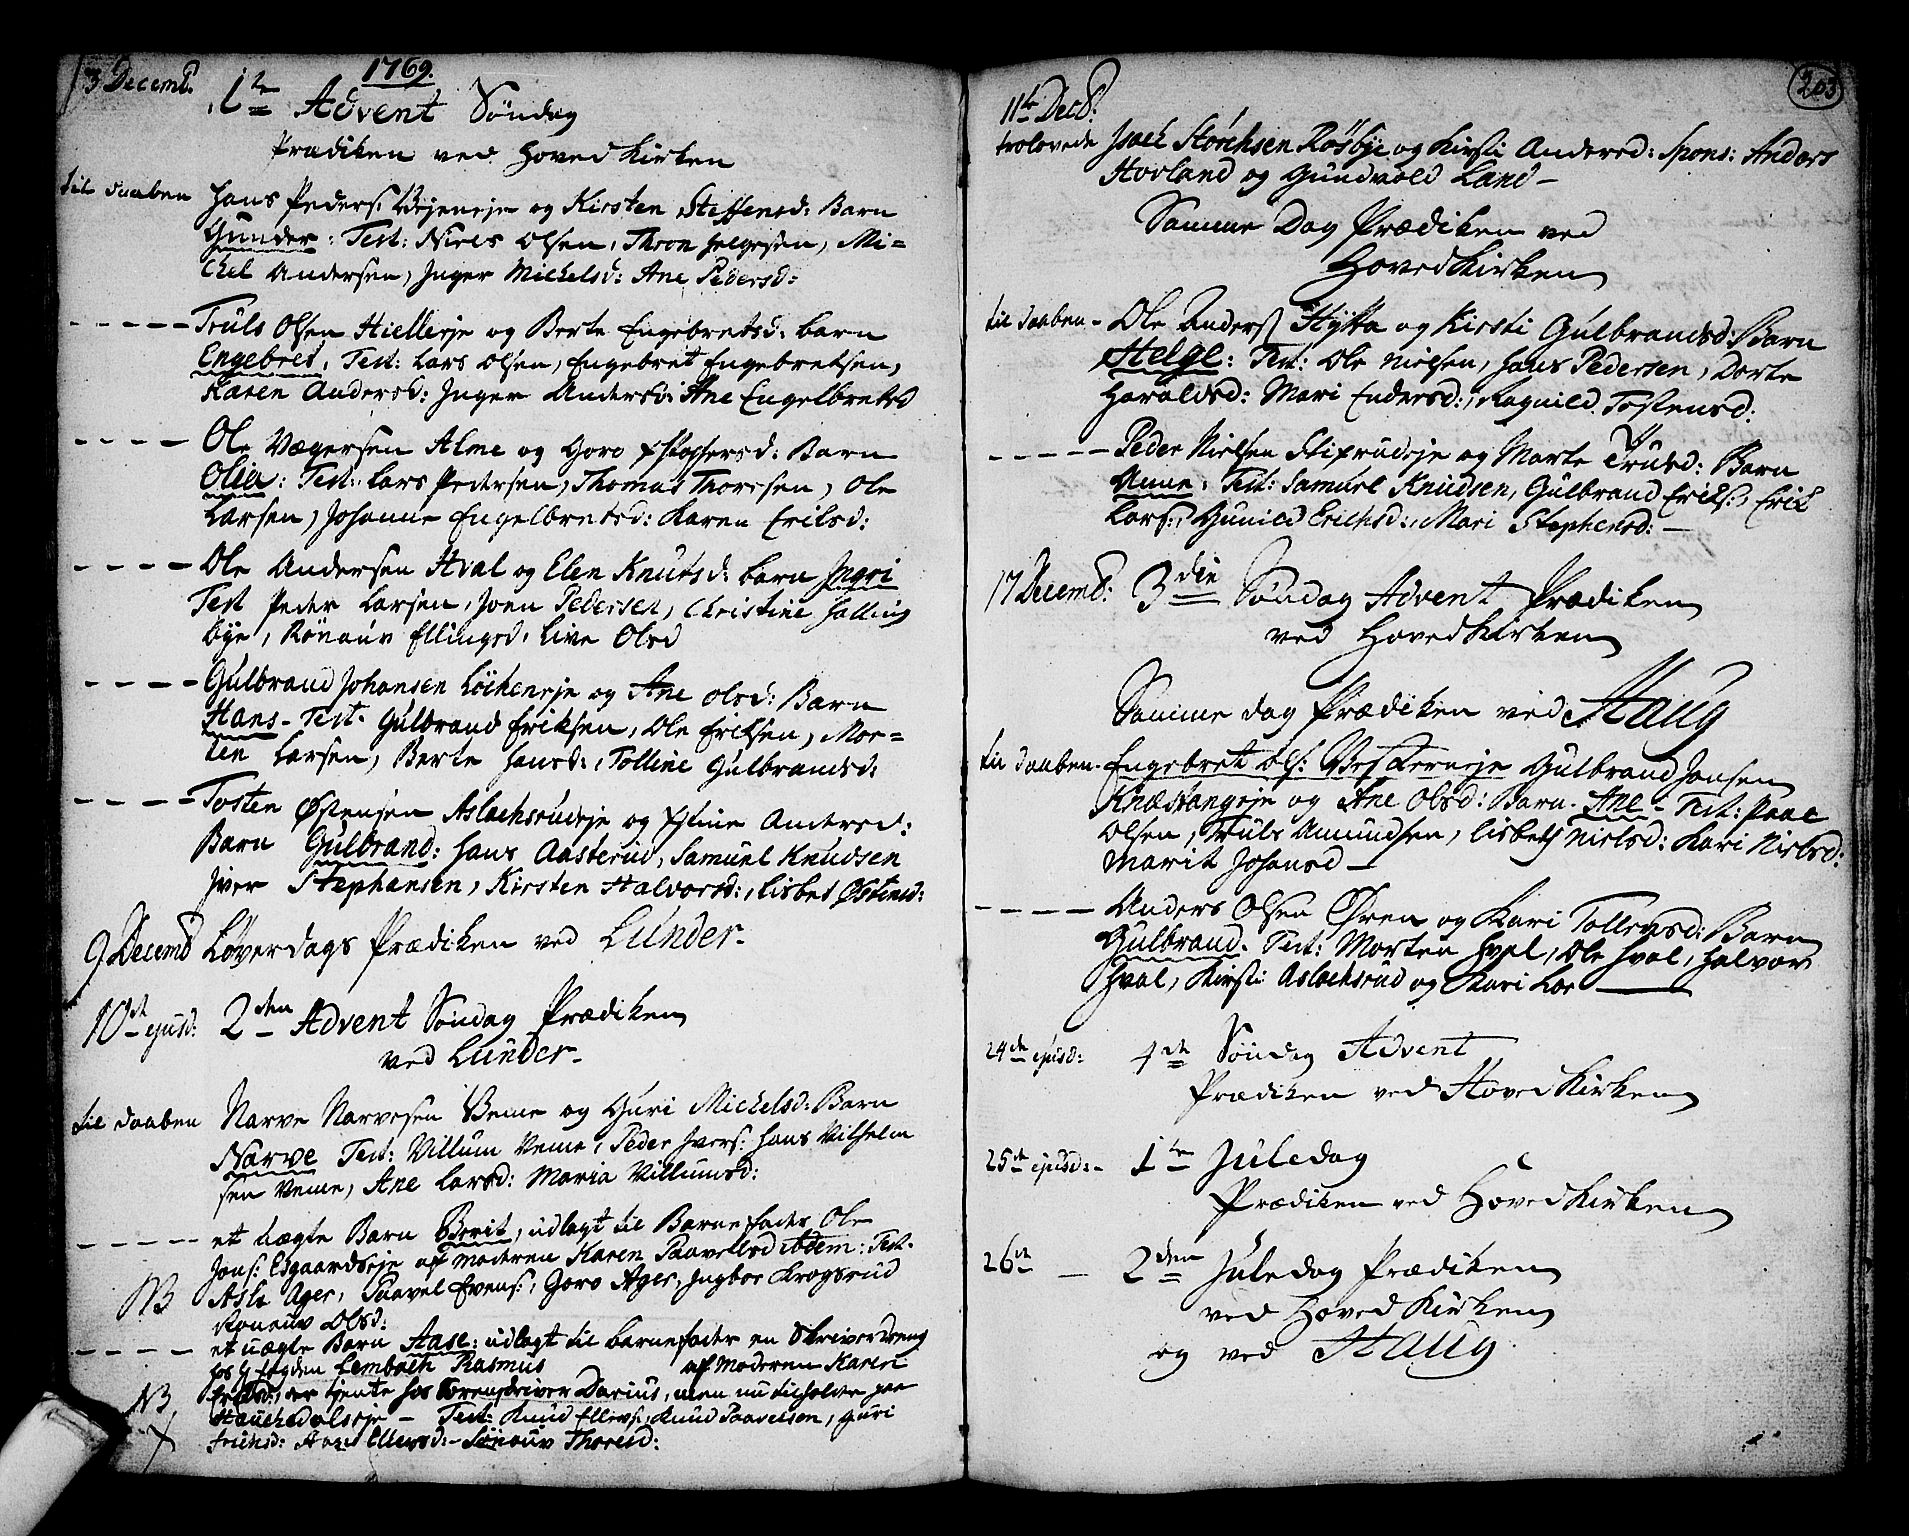 1769.
3 Decemb. 1te Advent Søndag
Prædiken ved Hoved Kirken
til daaben Hans Peders: og Kirsten Steffensd: Barn
Gunder: Test: Niels Olsen, Thron Helgesen, Mi=
chel Andersen, Inger Michelsd: Ane Pedersd:
----- Truls Olsen Hiellerje og Berte Engebretsd: barn
Engebret, Test: Lars Olsen, Engebret Engebretsen,
Karen Andersd: Inger Andersd: Ane Engelbretsd
---- Ole Vægersen Alme og Goro Barn
Olia: Test: Lars Pedersen, Thomas Thoresen, Ole
Larsen, Johanne Engelbretsd: Karen Eriksd:
---- Ole Andersen Hval og Elen Knutsd: barn Ingri
Test Peder Larsen, Joen Pedersen, Christine Halling
bye, Rønauv Ellingsd, Live Olsd
---- Gulbrand Johansen Løkeneje og Ane Olsd: Barn
Hans- Test. Gulbrand Eriksen, Ole Eriksen, Mor=
ten Larsen, Berte Hansd:, Tolline Gulbrandsd:
---- Tosten Østensen Aslachsrudeje og Andersd:
Barn Gulbrand: Hans Aasterud, Samuel Knudsen
Iver Stephansen, Kirsten Halvorsd:, Lisbet Østensd:
9 Decemb Løverdags Prædiken ved Lunder-
10de ejusd: 2den Advent Søndag Prædiken
ved Lunder-
til daaben Narve Narvesen Veme og Guri Michelsd: Barn
Narve Test: Villum Veme, Peder Ivers: Hans Vilhelm
sen Veme, Ane Larsd: Maria Villumsd:
----- et uægte Barn Berit, udlagt til Barnefader Ole
Jons: Esgaardseje af Moderen Karen Paavelsd ibdem: Test.
NB Asle Ager, Paavel Evens:, Goro Ager, Ingbor Krogsrud
Ronauv Olsd:
----- et uægte Barn Aase: udlagt til barnefader en Skriverdreng
hos Hr Fogden Lembach Rasmus af Moderen Karen
NB Eriksd:, tiente hos Sorenskriver Darius, men nu tilholder paa
- Test: Knud Ellevs:, Knud Paavelsen, Guri
Erichsd: Ellevsd:- Thoresd:
203
11te Decb:
trolovede Isach Størchsen Røsbye og Kirsti Andersd: Spons: Anders
Hovland og Gundvold Land-
Samme Dag Prædiken ved
Hoved Kirken
til daaben- Ole Anders: og Kirsti Gulbrandsd: Barn
Helge: Test: Ole Nielsen, Hans Pedersen, Dorte
Haraldsd: Mari Endersd:, Ragnild Tostensd:
----- Peder Nielsen Stixrudeje og Marte Trulsd: Barn
Anne, Test: Samuel Knudsen, Gulbrand Eriks:, Erik
Lars:, Gunild Erichsd:, Mari Stephensd:-
17 Decemb: 3die Søndag Advent Prædiken
ved Hoved Kirken
Samme dag Prædiken ved Haug
til daaben- Engebret Ols: Vesterneje Gulbrand Jansen
Knæstangeje og Ane Olsd: Barn- Ane- Test: Paae
Olsen, Truls Amundsen, Lisbeth Nielsd: Kari Nielsd:
Marit Johansd-
----- Anders Olsen Øren og Kari Tollevsd: Barn
Gulbrand. Test: Morten Hval, Ole Hval, Halvor
Hval, Kirsti Aslachsrud og Kari Loe -
24de ejusd: 4de Søndag Advent
Prædiken ved Hoved Kirken
25de ejusd:- 1te Juledag
Prædiken ved Hoved Kirken
26de - 2den Juledag Prædiken
ved Hoved Kirken
og ved Haug.